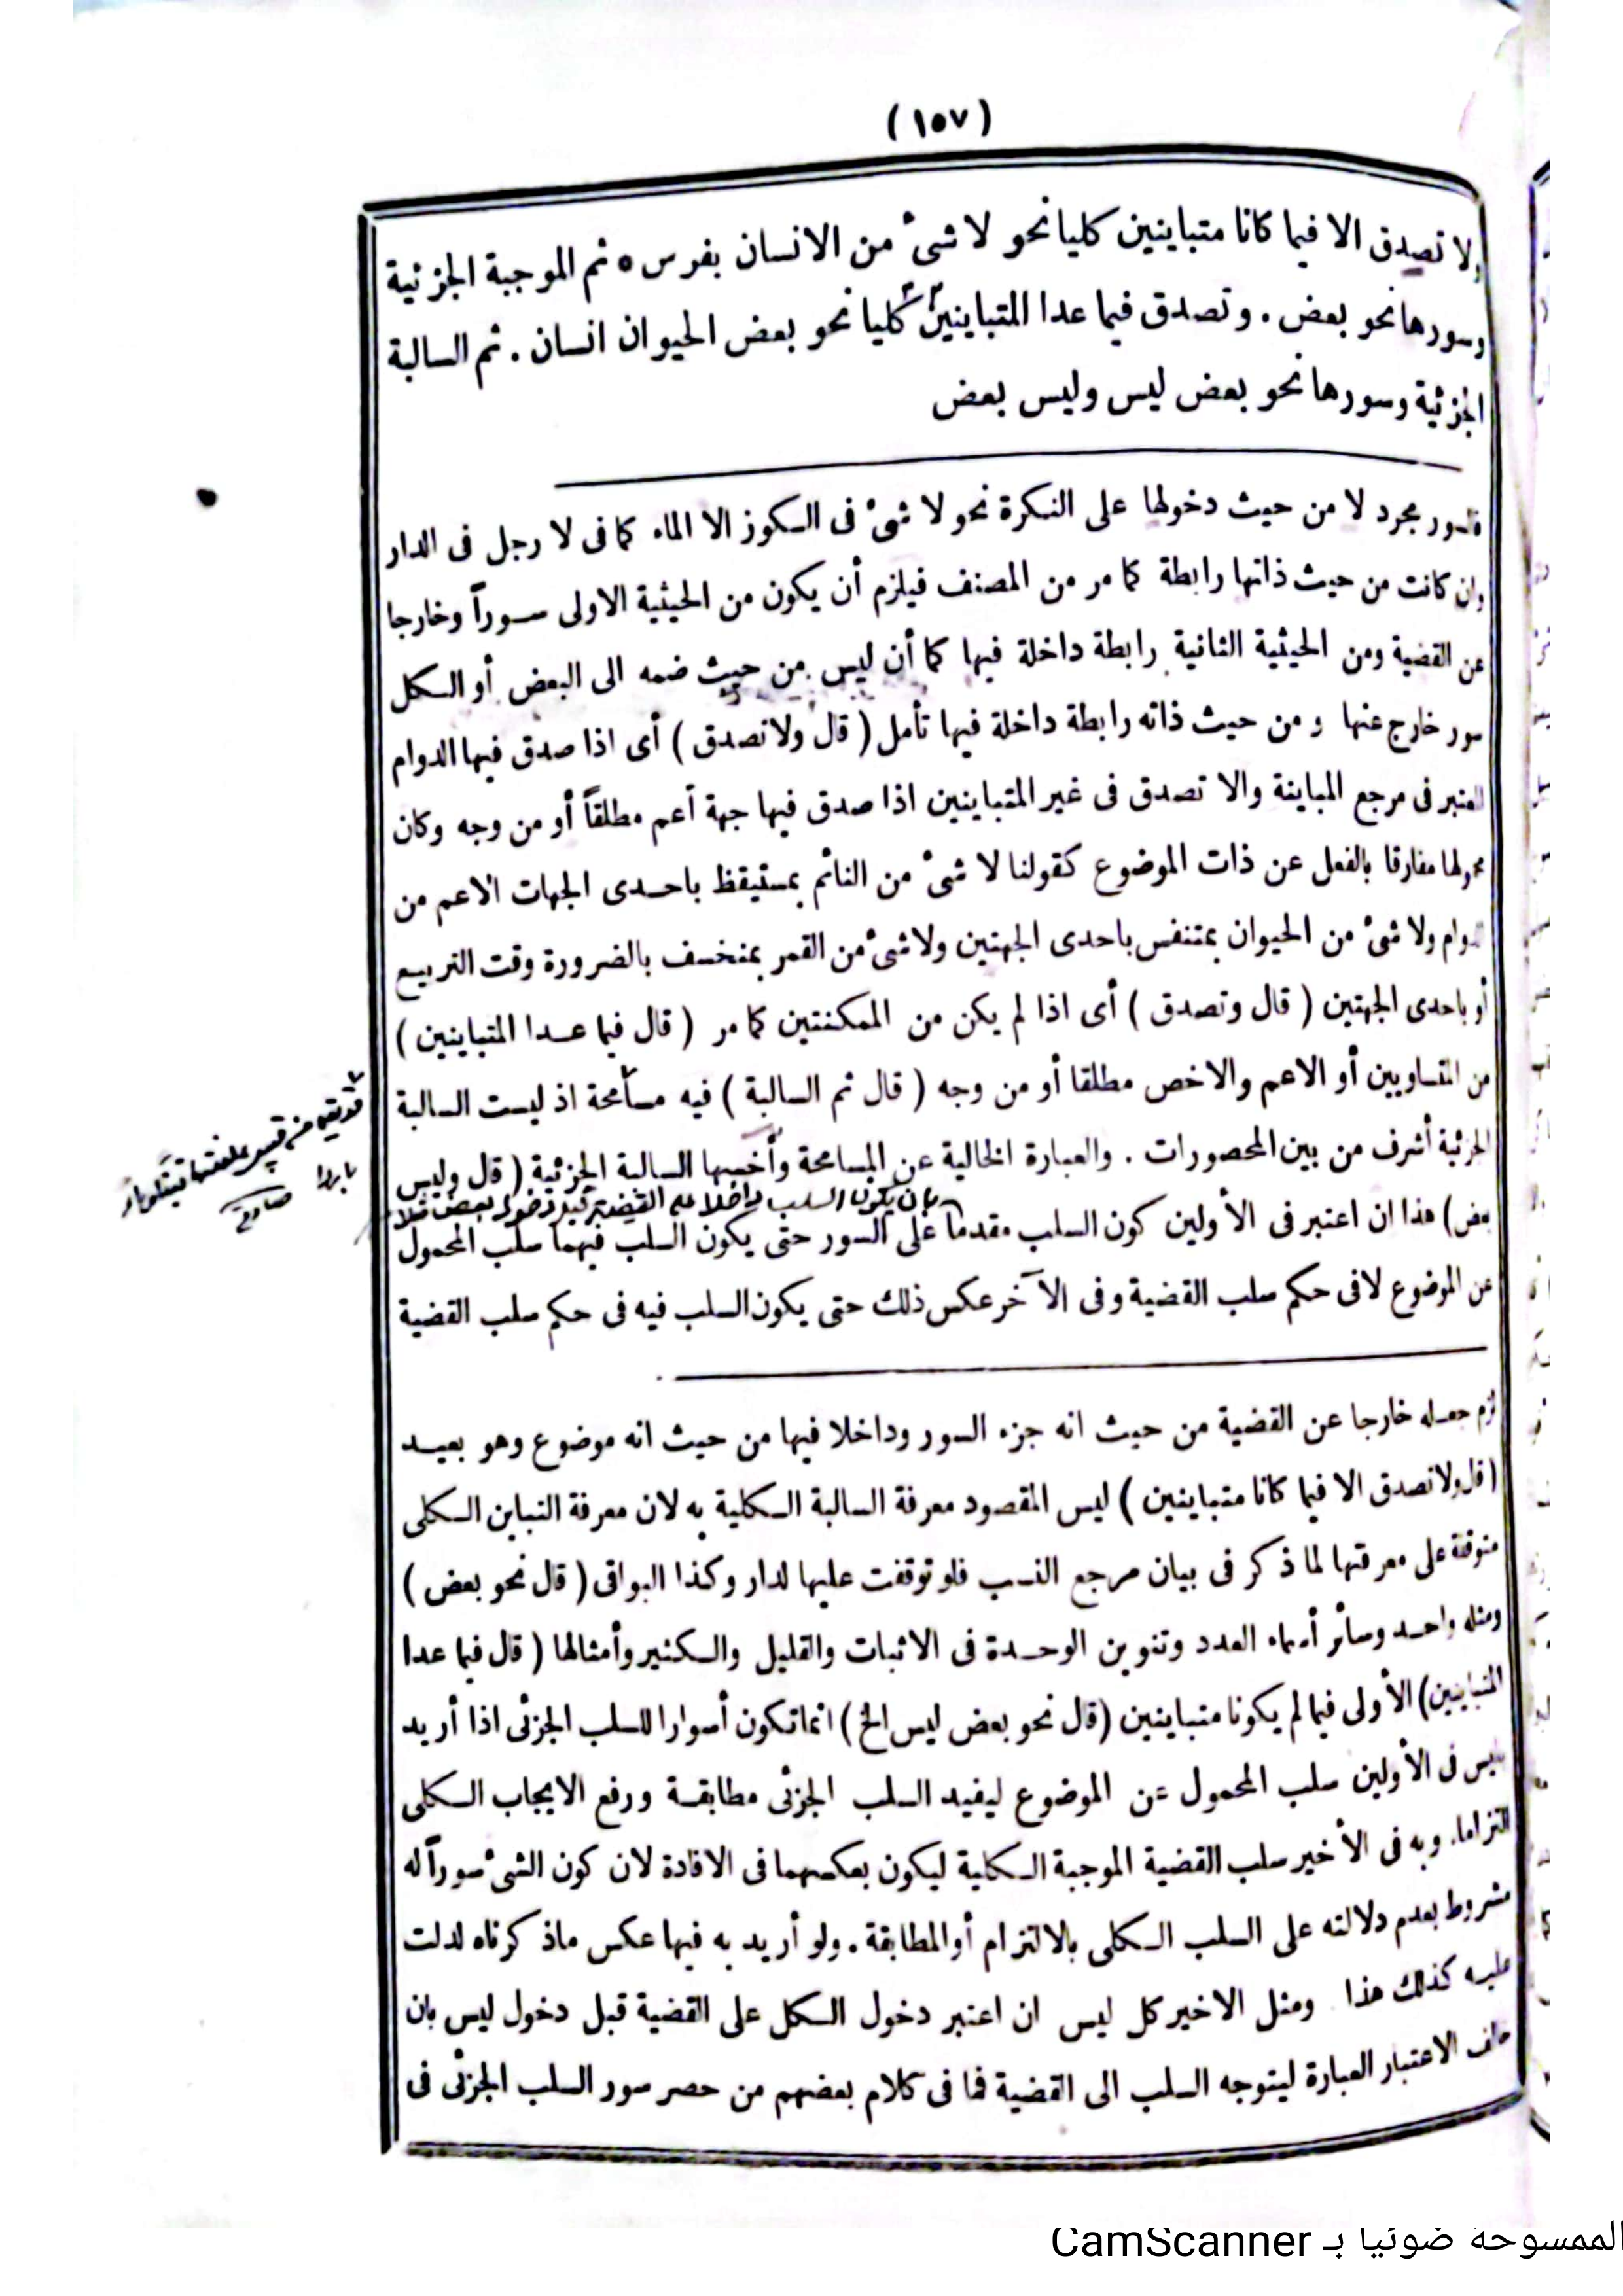 (١٥٧)
ولا تصدق الا فيما كانا متباينين كليا نحو لا شىء من الانسان بفرس ه ثم الموجبة الجزئية
وسورها نحو بعض . وتصدق فيما عدا المتباينين كليا نحو بعض الحيوان انسان . ثم السالبة
الجزئية وسورها نحو بعض ليس وليس بعض
مجرد لا من حيث دخولها على النكرة نحو لا شىء فى الكوز الا الماء كما فى لا رجل فى الدار
وان كانت من حيث ذاتها رابطة كما مر من المصنف فيلزم أن يكون من الحيثية الاولى سوراً وخارجا
عن القضية ومن الحيثية الثانية رابطة داخلة فيها كما أن ليس من حيث ضمه الى البعض أو الكل
سور خارج عنها ومن حيث ذاته رابطة داخلة فيها تأمل ( قال ولا تصدق ) أى اذا صدق فيها الدوام
المعتبر فى مرجع المباينة والا تصدق فى غير المتباينين اذا صدق فيها جهة أعم مطلقاً أو من وجه وكان
محمولها مفارقا بالفعل عن ذات الموضوع كقولنا لا شىء من النائم بمستيقظ باحدى الجهات الاعم من
الدوام ولا شىء من الحيوان بمتنفس باحدى الجهتين ولا شىء من القمر بمنخسف بالضرورة وقت التربيع
أو باحدى الجهتين ( قال وتصدق ) أى اذا لم يكن من الممكنتين كما مر ( قال فيما عدا المتباينين )
من المتساويين أو الاعم والاخص مطلقا أو من وجه ( قال ثم السالبة ) فيه مسامحة اذ ليست السالبة
الجزئية أشرف من بين المحصورات . والعبارة الخالية عن المسامحة وأخسها السالبة الجزئية ( قال وليس
بأن يكون السلب داخلا على القضية
بعض ) هذا ان اعتبر فى الأولين كون السلب مقدماً على السور حتى يكون السلب فيهما سلب المحمول
عن الموضوع لا فى حكم سلب القضية وفى الآخر عكس ذلك حتى يكون السلب فيه فى حكم سلب القضية
لزم جعله خارجا عن القضية من حيث انه جزء السور وداخلا فيها من حيث انه موضوع وهو بعيد
( قال ولا تصدق الا فيما كانا متباينين ) ليس المقصود معرفة السالبة الكلية به لان معرفة التباين الكلى
متوقفة على معرفتها لما ذكر فى بيان مرجع النسب فلو توقفت عليها لدار وكذا البواقى ( قال نحو بعض )
ومثله واحد وسائر أسماء العدد وتنوين الوحدة فى الاثبات والقليل والكثير وأمثالها ( قال فيما عدا
المتباينين ) الأولى فيما لم يكونا متباينين ( قال نحو بعض ليس الخ ) انما تكون أسوارا للسلب الجزئى اذا أريد
بليس فى الأولين سلب المحمول عن الموضوع ليفيد السلب الجزئى مطابقة ورفع الايجاب الكلى
التزاما. وبه فى الأخير سلب القضية الموجبة الكلية ليكون بعكسهما فى الافادة لان كون الشىء سوراً له
مشروط بعدم دلالته على السلب الكلى بالالتزام أو المطابقة . ولو أريد به فيها عكس ما ذكرناه لدلت
عليه كذلك هذا ومثل الاخير كل ليس ان اعتبر دخول الكل على القضية قبل دخول ليس بان
الاعتبار العبارة ليتوجه السلب الى القضية فما فى كلام بعضهم من حصر سور السلب الجزئى فى
الممسوحة ضوئيا بـ CamScanner